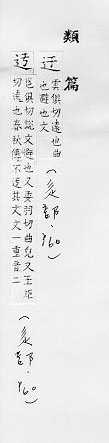 類篇
迂
雲俱切遠也曲
也避也文一
（辵部・y60）
迃
邕俱切說文避也又羽切曲皃又王矩
切遠也春秋傳不迃其文文一重音二
（辵部・y60）